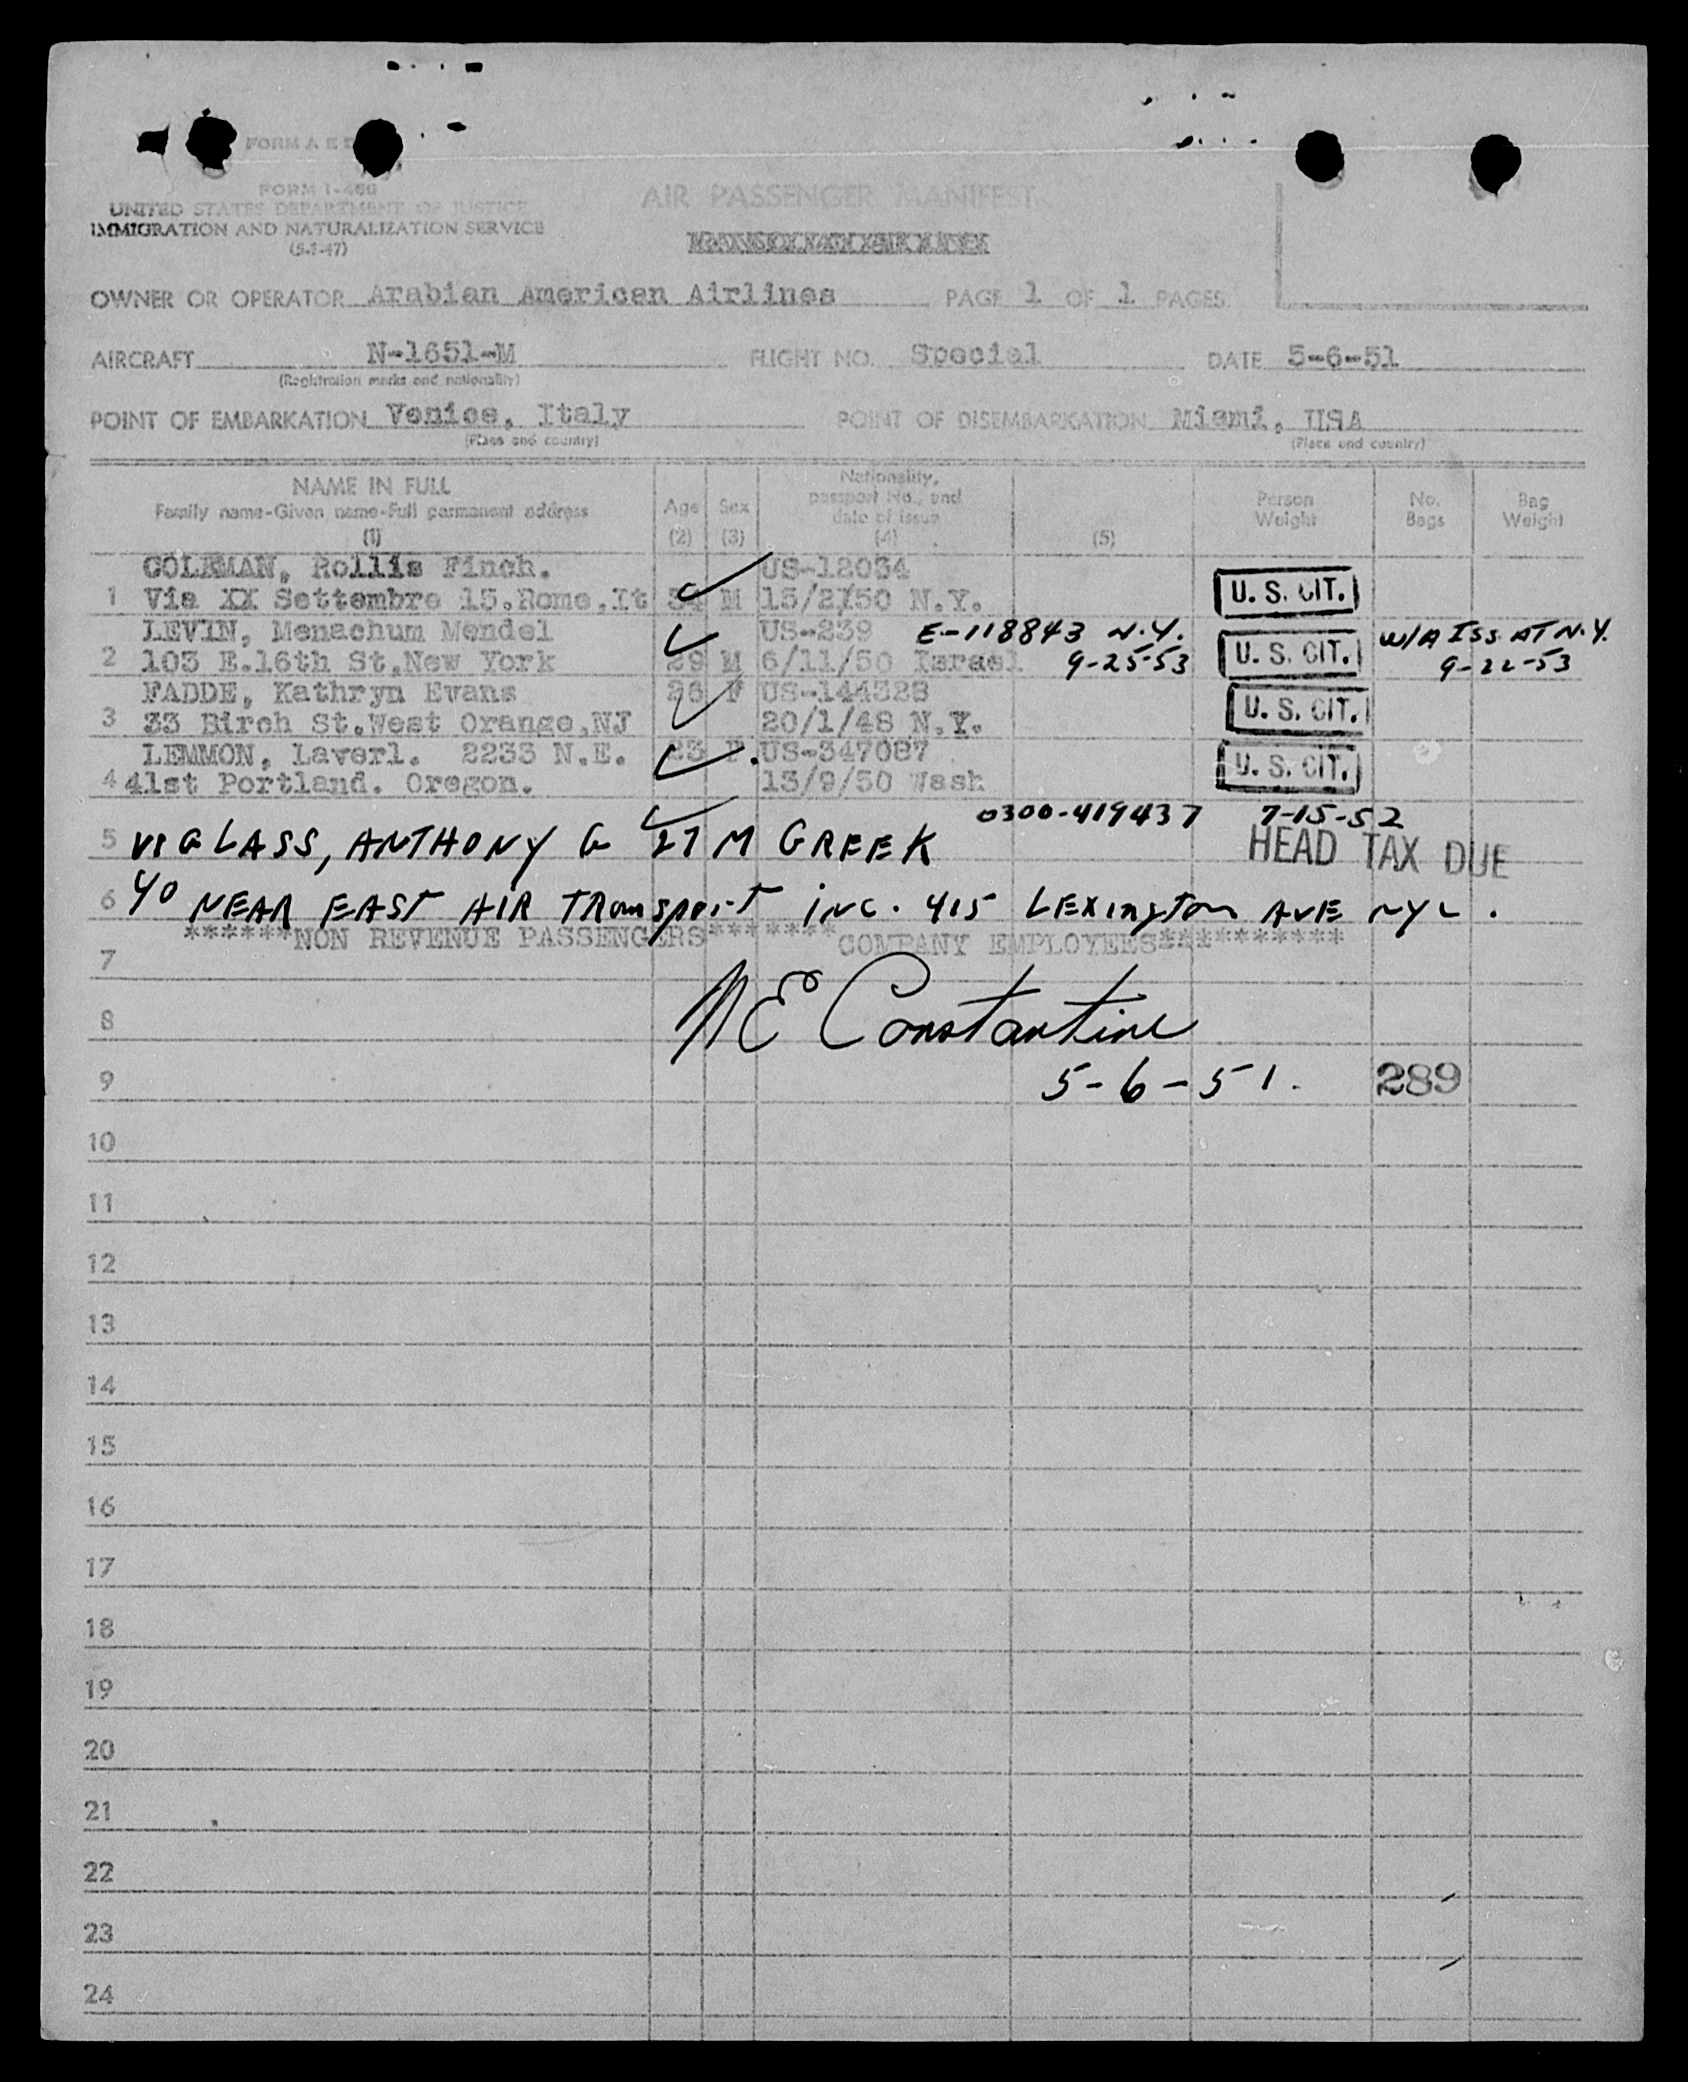 FORM A E
FORM I-466
UNITED STATES DEPARTMENT OF JUSTICE
IMMIGRATION AND NATURALIZATION SERVICE
(5-1-47)
AIR PASSENGER MANIFEST
OWNER OR OPERATOR Arabian American Airlines PAGE 1 OF 1 PAGES
AIRCRAFT N-1651-M FLIGHT NO. Special DATE 5-6-51
(Registration marks and nationality)
POINT OF EMBARKATION Venice, Italy POINT OF DISEMBARKATION Miami, USA
(Place and country) (Place and country)
NAME IN FULL
Family name-Given name-Full permanent address
(1)
Age
(2)
Sex
(3)
Nationality,
passport No., and
date of issue
(4)
(5)
Person
Weight
No.
Bags
Bag
Weight
COLEMAN, Rollis Finch. US-12034
1 Via XX Settembre 15.Rome,It 34 M 15/2/50 N.Y. U. S. CIT.
LEVIN, Menachum Mendel US-239 E-118843 N.Y. W/A ISS AT N.Y.
2 103 E.16th St,New York 29 M 6/11/50 Israel 9-25-53 U. S. CIT. 9-22-53
FADDE, Kathryn Evans 26 F US-144328
3 33 Birch St.West Orange,NJ 20/1/48 N.Y. U. S. CIT.
LEMMON, Laverl. 2233 N.E. 23 F US-347087
4 41st Portland. Oregon. 13/9/50 Wash U. S. CIT.
0300-419437 7-15-52
5 GLASS, ANTHONY G 27 M GREEK HEAD TAX DUE
6 NEAR EAST AIR TRansport inc. 415 LExington AVE NYC.
******NON REVENUE PASSENGERS******* COMPANY EMPLOYEES**********
7
N E Constantine
8
9 5-6-51. 289
10
11
12
13
14
15
16
17
18
19
20
21
22
23
24